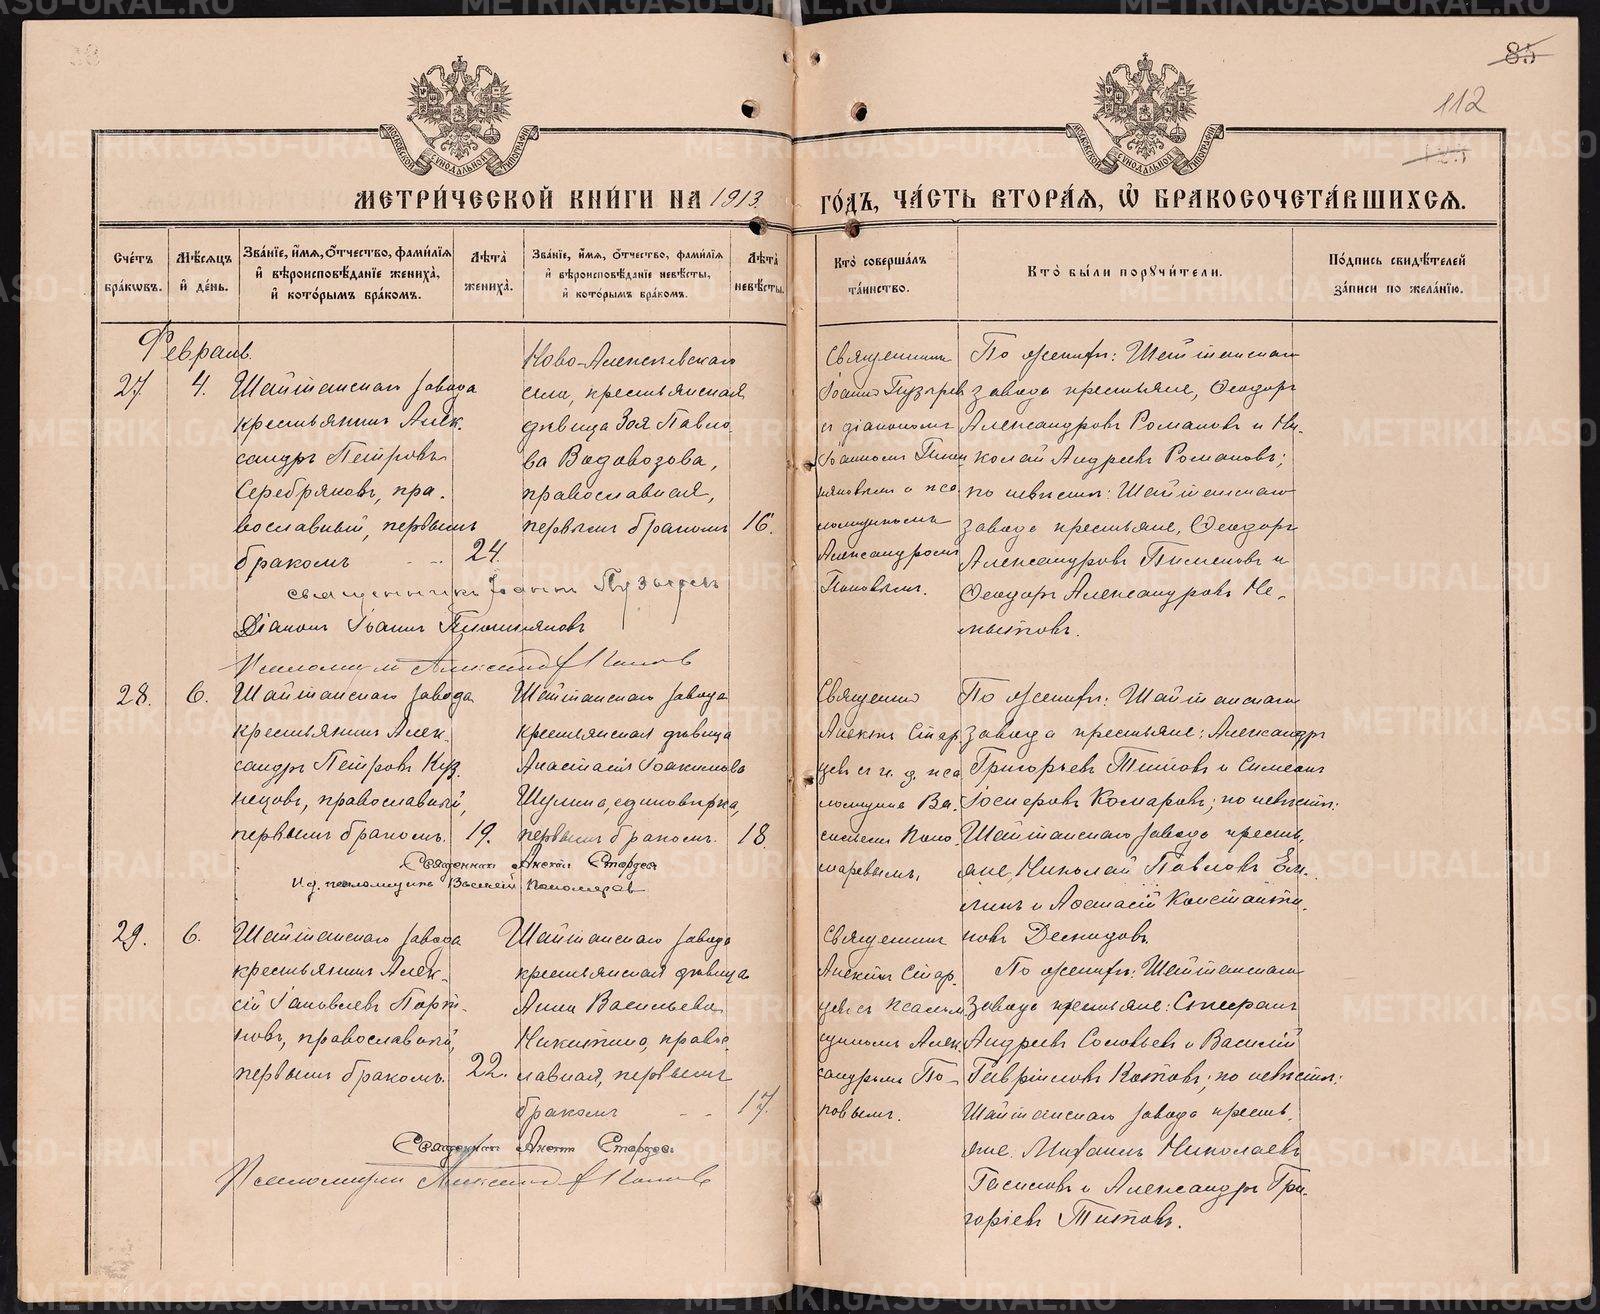 85
112
МОСКОВСКОЙ СѴНОДАЛЬНОЙ ТИПОГРАФІИ
МОСКОВСКОЙ СѴНОДАЛЬНОЙ ТИПОГРАФІИ
МЕТРИ́ЧЕСКОЙ КНИ́ГИ НА 1913 ГО́ДЪ, ЧА́СТЬ ВТОРА́Я, Ѡ҆ БРАКОСОЧЕТА́ВШИХСЯ.
Сче́тъ бра́кѡвъ.
Мѣ́сяцъ и҆ де́нь.
Зва́нїе, и҆́мя, о҆́тчество, фами́лїя и҆ вѣроисповѣ́данїе жениха̀, и҆ кото́рымъ бра́комъ.
Лѣта̀ жениха̀.
Зва́нїе, и҆́мя, о҆́тчество, фами́лїя и҆ вѣроисповѣ́данїе невѣ́сты, и҆ кото́рымъ бра́комъ.
Лѣта̀ невѣ́сты.
Кто̀ соверша́лъ та́инство.
Кто̀ бы́ли порꙋчи́тели.
По́дпись свидѣ́телей за́писи по жела́нїю.
Февраль.
27. 4.
Шайтанскаго завода
крестьянинъ Алек-
сандръ Петровъ
Серебряковъ, пра-
вославный, первымъ
бракомъ 24.
Ново-Алексѣевскаго
села, крестьянская
дѣвица Зоя Павло-
ва Водовозова,
православная,
первымъ бракомъ 16.
Священникъ
Іоаннъ Пузыревъ
съ діакономъ
Іоанномъ
и пса-
ломщикомъ
Александромъ
Поповымъ.
По женихѣ: Шайтанскаго
завода крестьяне, Ѳеодоръ
Александровъ Романовъ и Ни-
колай Андреевъ Романовъ;
по невѣстѣ: Шайтанскаго
завода крестьяне, Ѳеодоръ
Александровъ Пименовъ и
Ѳеодоръ Александровъ Не-
мытовъ.
священникъ Іоаннъ Пузыревъ
Діаконъ Іоаннъ
Псаломщикъ Александръ Поповъ
28. 6.
Шайтанскаго завода
крестьянинъ Алек-
сандръ Петровъ Куз-
нецовъ, православный,
первымъ бракомъ. 19.
Шайтанскаго завода
крестьянская дѣвица
Анастасія Іоакимова
Шулина, единовѣрка,
первымъ бракомъ. 18
Священникъ
Алексѣй Стар-
цевъ съ и. д. пса-
ломщика Ва-
силіемъ Поно-
маревымъ.
По женихѣ: Шайтанскаго
завода крестьяне: Александръ
Григорьевъ Титовъ и Симеонъ
Іосифовъ Комаровъ; по невѣстѣ:
Шайтанскаго завода кресть-
яне Николай Павловъ Ель-
кинъ и Аѳанасій Константи-
новъ Демидовъ.
Священникъ Алексѣй Старцев
И. д. псаломщика Василій Пономарев
29. 6.
Шайтанскаго завода
крестьянинъ Алек-
сѣй Іаковлевъ Порт-
новъ, православный,
первымъ бракомъ. 22.
Шайтанскаго завода
крестьянская дѣвица
Анна Васильева
Никитина, право-
славная, первымъ
бракомъ 17.
Священникъ
Алексѣй Стар-
цевъ съ псалом-
щикомъ Алек-
сандромъ По-
повымъ.
По женихѣ: Шайтанскаго
завода крестьяне: Стефанъ
Андреевъ Соловьевъ и Василій
Гавріиловъ Котовъ; по невѣстѣ:
Шайтанскаго завода кресть-
яне Михаилъ Николаевъ
и Александръ Гри-
горіевъ Титовъ.
Священникъ Алексѣй Старцев
Псаломщикъ Александръ Поповъ
METRIKI.GASO-URAL.RU